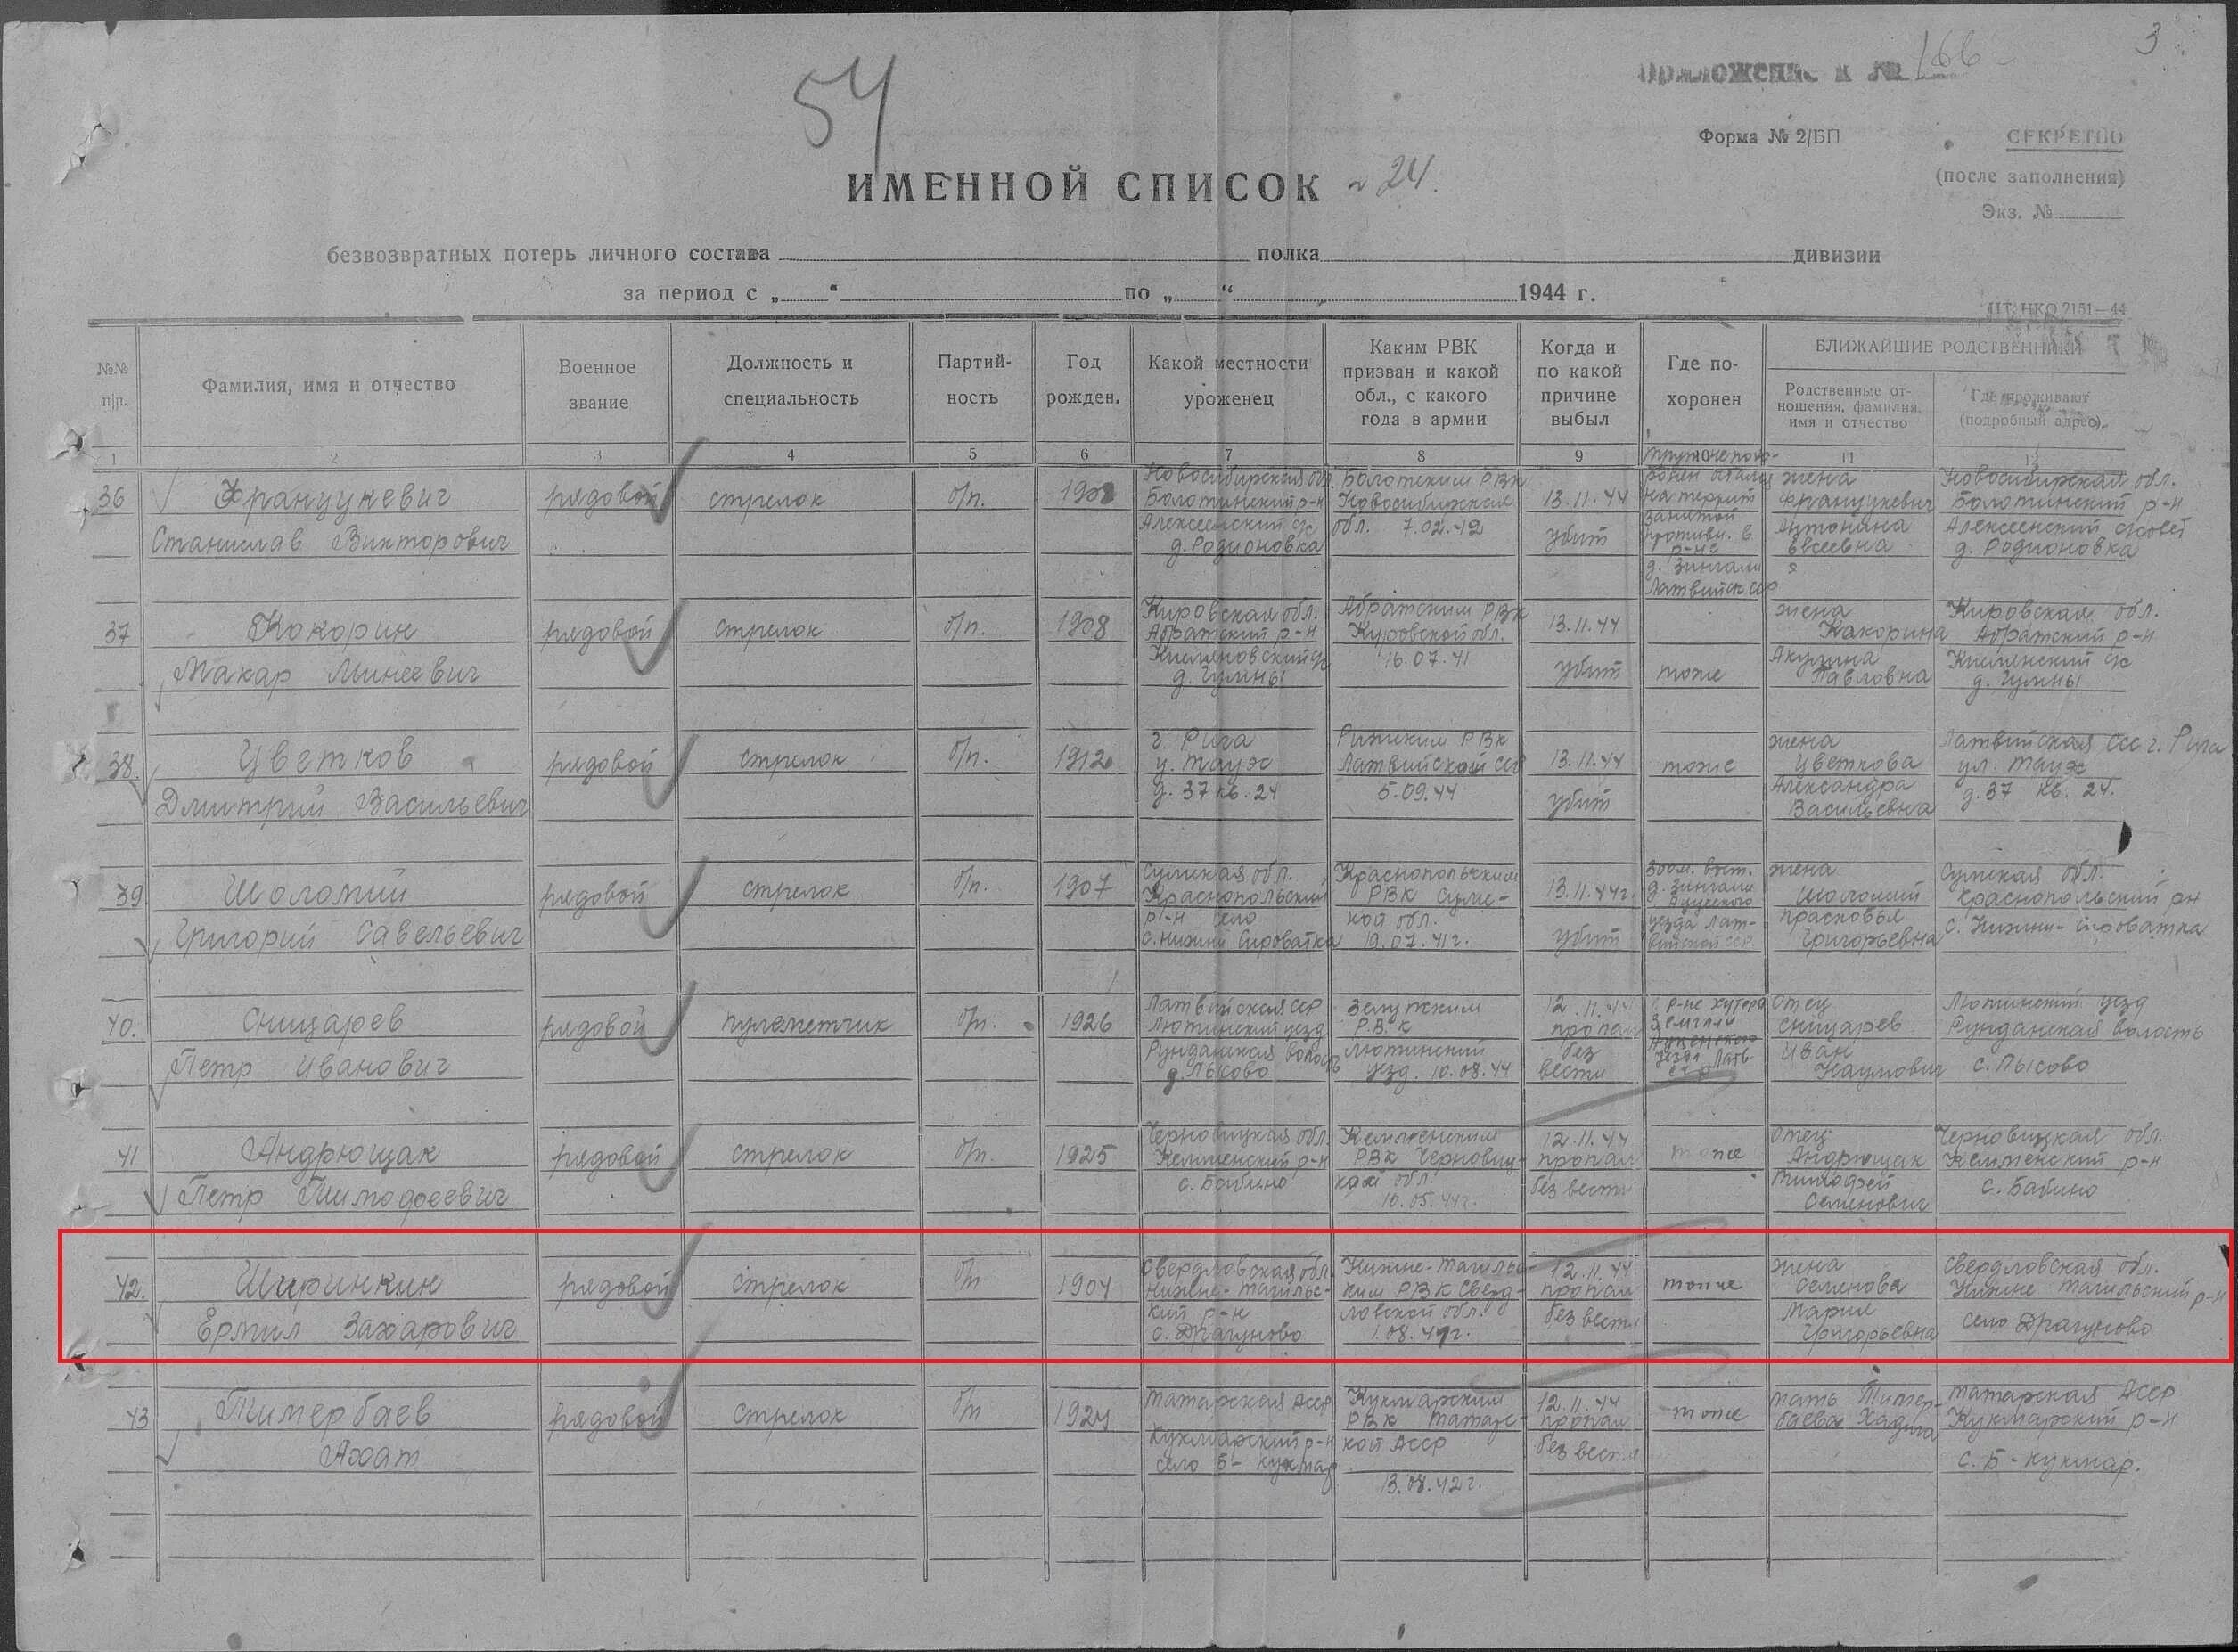 3
54
Приложение к № 166
Форма № 2/БП
СЕКРЕТНО
(после заполнения)
Экз. №
ИМЕННОЙ СПИСОК № 24.
безвозвратных потерь личного состава полка дивизии
за период с „ “ по „ “ 1944 г.
№№ п/п.
Фамилия, имя и отчество
Военное звание
Должность и специальность
Партийность
Год рожден.
Какой местности уроженец
Каким РВК призван и какой обл., с какого года в армии
Когда и по какой причине выбыл
Где похоронен
БЛИЖАЙШИЕ РОДСТВЕННИКИ
Родственные отношения, фамилия, имя и отчество
Где проживают (подробный адрес)
1 2 3 4 5 6 7 8 9 11
36 Францукевич Станислав Викторович рядовой стрелок б/п. 1908
Новосибирская обл. Болотнинский р-н Алексеевский с/с д. Родионовка
Новосибирская обл. 7.02.42
13.11.44 убит
д. Зингали Латвийск. ССР
жена Францукевич Антонина Евсеевна
Новосибирская обл. Болотнинский р-н Алексеевский с/совет д. Родионовка
37 Кокорин Макар Минеевич рядовой стрелок б/п. 1908
Кировская обл. р-н
РВК Кировской обл. 16.07.41
13.11.44 убит
тоже
жена Какорина Акулина Павловна
Кировская обл. р-н
38. Цветков Дмитрий Васильевич рядовой стрелок б/п. 1912
г. Рига д. 37 кв. 24
Рижским РВК Латвийской ССР 5.09.44
13.11.44 убит
тоже
жена Цветкова Александра Васильевна
г. Рига д. 37 кв. 24.
39 Шоломий Григорий Савельевич рядовой стрелок б/п. 1907
Сумская обл. Краснопольский р-н село с. Нижни Сироватка
Краснопольским РВК Сумской обл. 19.07.41г.
13.11.44г. убит
д. Зингали уезда Латвийской ССР.
жена Шоломий Прасковья Григорьевна
Сумская обл. Краснопольский рн с. Нижни-Сироватка
40. Сницарев Петр Иванович рядовой пулеметчик б/п. 1926
Латвийская ССР Лютинский уезд Рунданская волость д. Лысово
РВК Лютинский уезд. 10.08.44
12.11.44 пропал без вести
р-не хутора
отец Сницарев Иван Наумович
Лютинский уезд Рунданская волость
41 Андрющак Петр Тимофеевич рядовой стрелок б/п. 1925
Черновицкая обл. Кельменский р-н с. Бабино
Кельменским РВК Черновицкой обл. 10.05.44г.
12.11.44 пропал без вести
тоже
отец Андрющак Тимофей Семенович
Черновицкая обл. Кельменский р-н с. Бабино
42. Ширинкин Ермил Захарович рядовой стрелок б/п 1904
Свердловская обл. Нижне-Тагильский р-н с. Драгуново
Нижне-Тагильским РВК Свердловской обл. 1.08.41г.
12.11.44 пропал без вести
тоже
жена Семенова Мария Григорьевна
Свердловская обл. Нижне Тагильский р-н село Драгуново
43 Тимербаев Ахат рядовой стрелок б/п 1924
Татарская АССР Кукмарский р-н село Б-Кукмар
Кукмарским РВК Татарской АССР 13.08.42г.
12.11.44 пропал без вести
тоже
мать Тимербаева Хадича
Татарская АССР Кукмарский р-н с. Б-Кукмар.